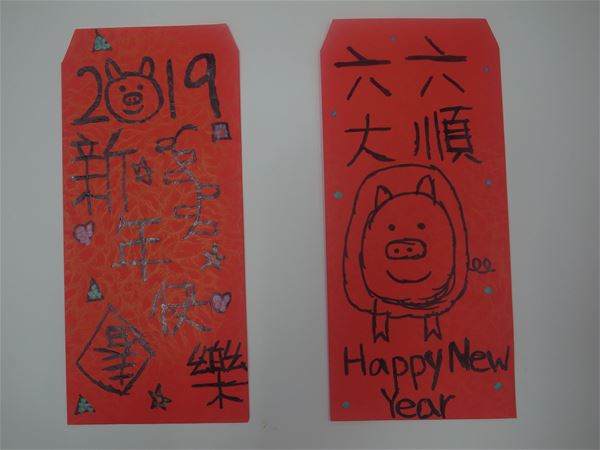 2019
新
年
快
樂
六六
大順
Happy New
Year